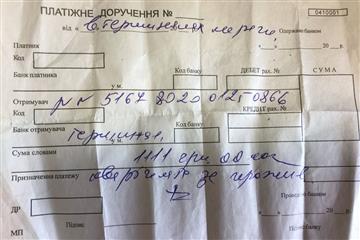 ПЛАТІЖНЕ ДОРУЧЕННЯ №
0410001
від « »
Одержано банком
Платник
« » 20 р.
Код
Банк платника
Код банку
ДЕБЕТ рах. №
СУМА
у м.
Отримувач № 5167 8020 0125 0866
Код
КРЕДИТ рах. №
Банк отримувача
Код банку
у м.
Сума словами
1111 грн 00 коп
Призначення платежу
Проведено банком
ДР
« » 20 р.
М.П.
Підпис